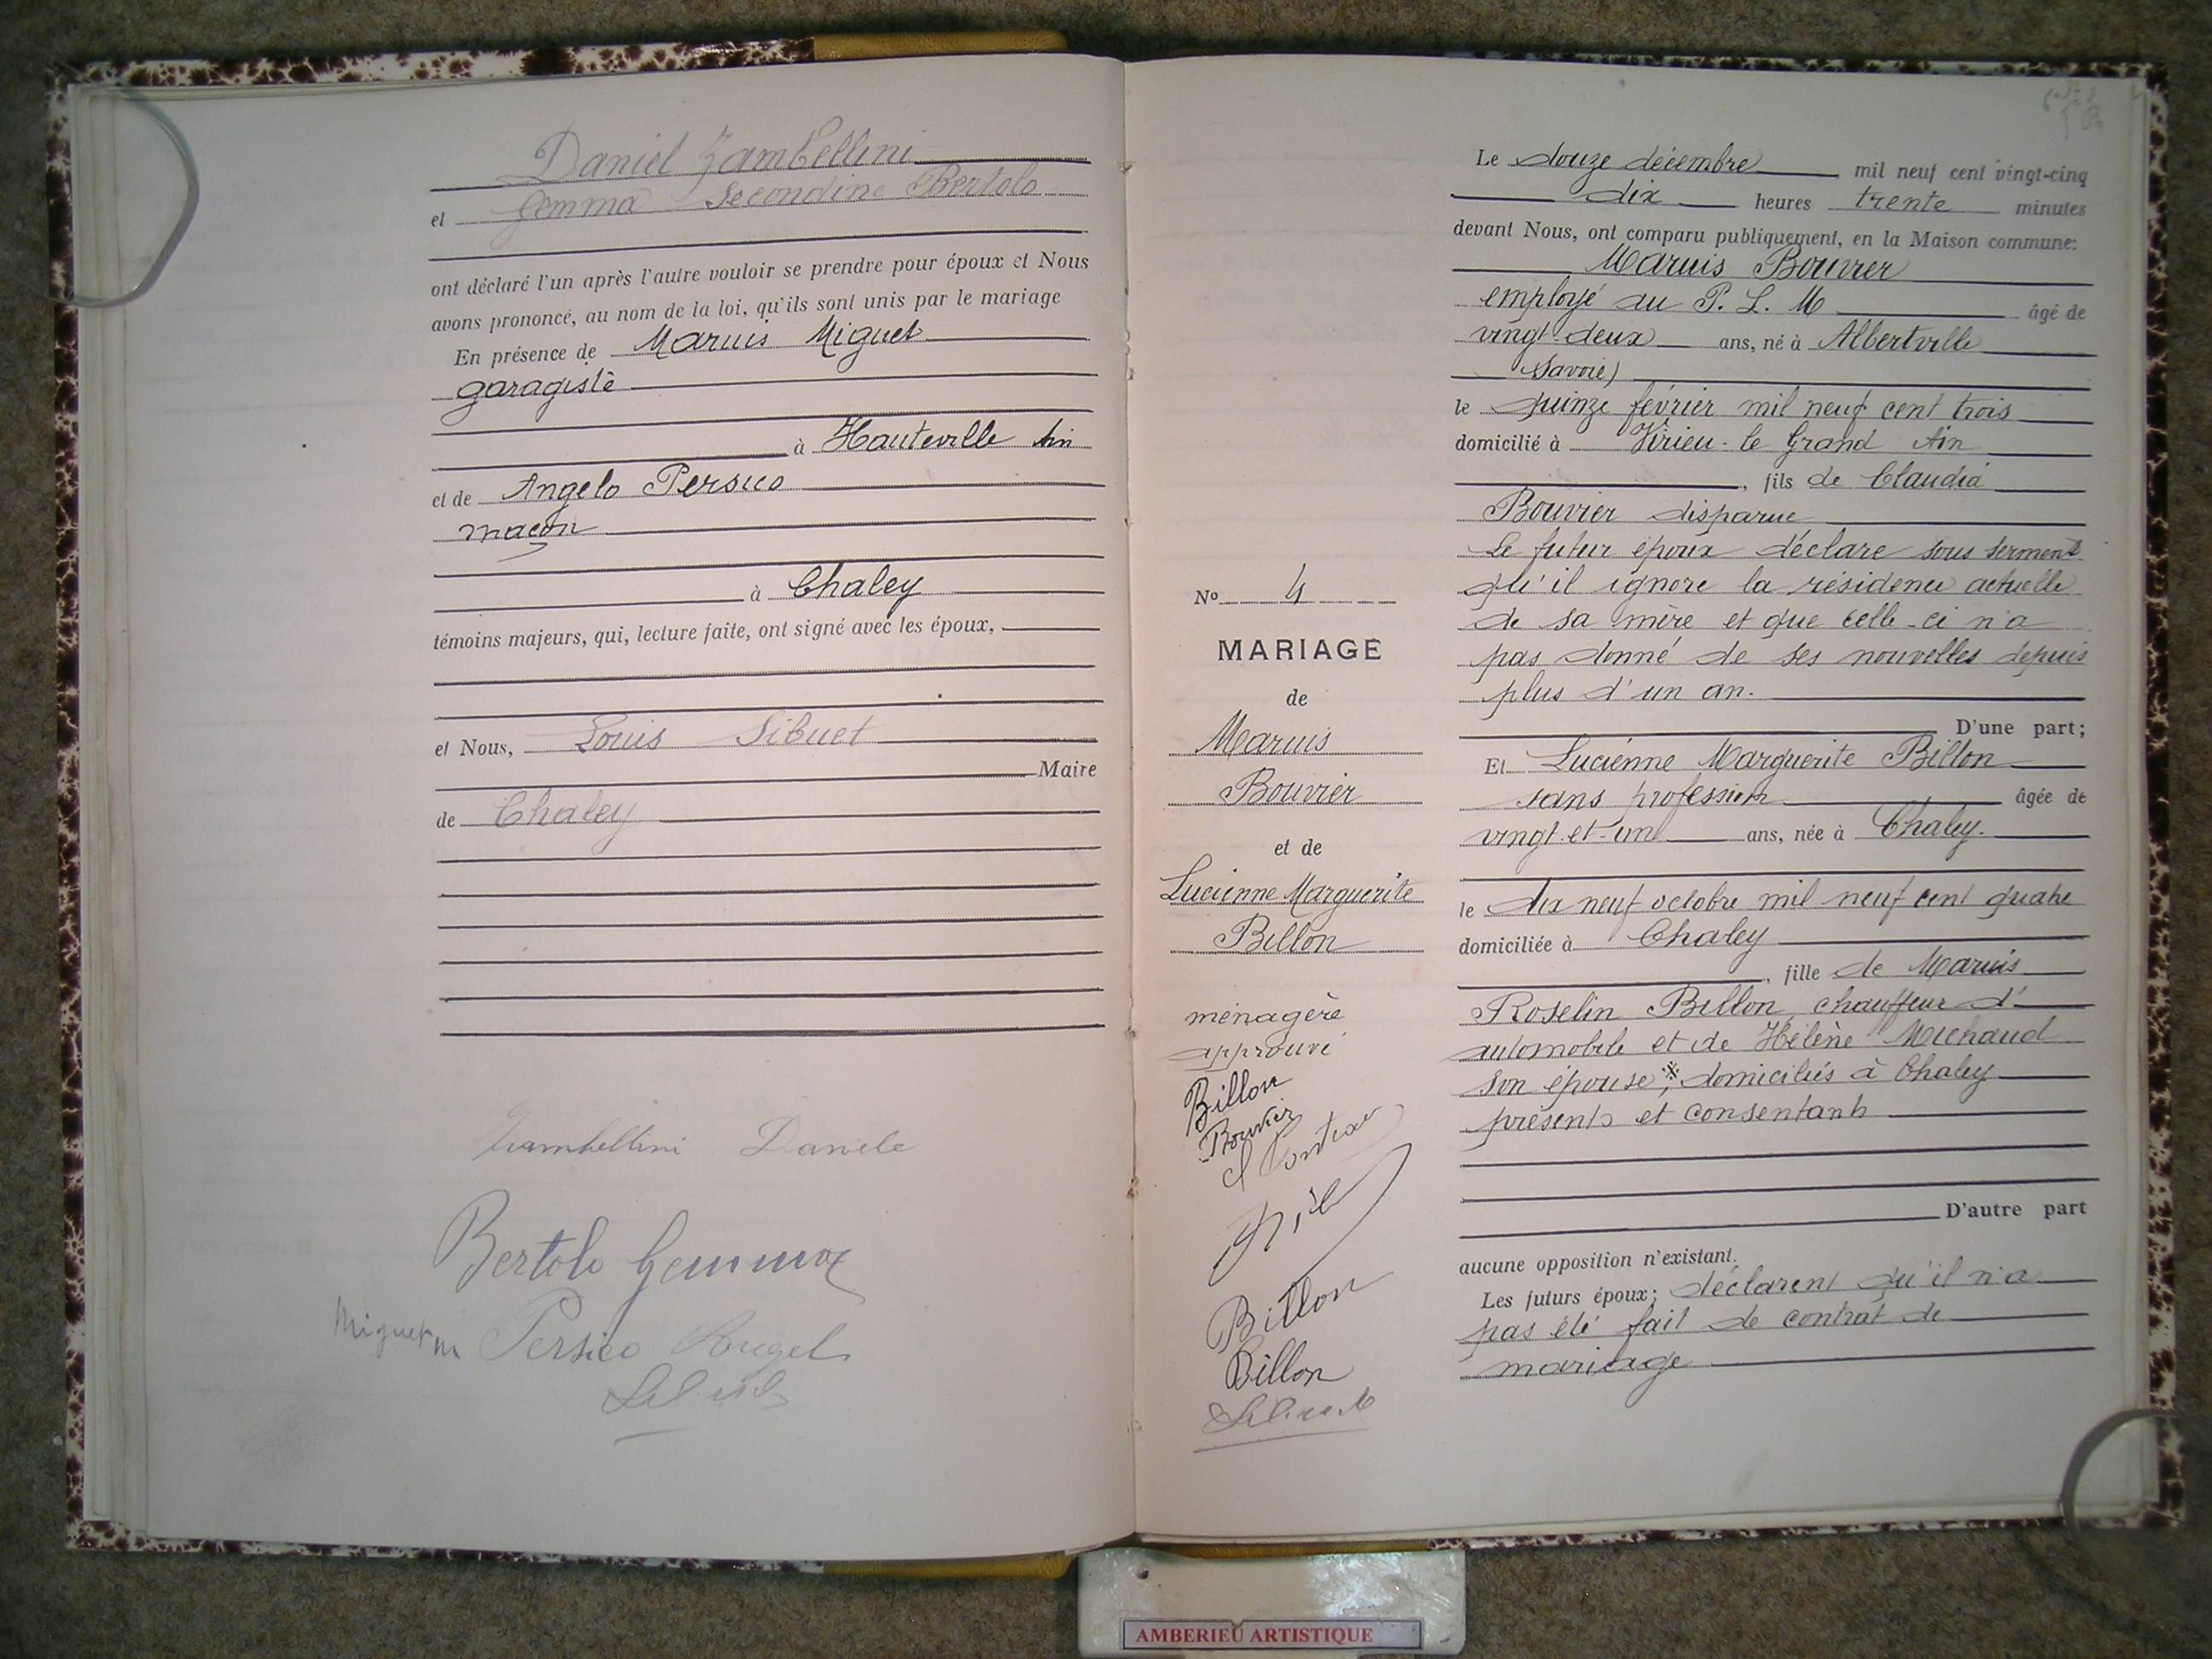 Daniel Zambellini
et Gemma Secondine Bertolo
ont déclaré l'un après l'autre vouloir se prendre pour époux et Nous
avons prononcé, au nom de la loi, qu'ils sont unis par le mariage
En présence de Marius Miguet
garagiste
à Hauteville Ain
et de Angelo Persico
maçon
à Chaley
témoins majeurs, qui, lecture faite, ont signé avec les époux,
et Nous, Louis Sibuet
Maire
de Chaley
Zambellini Daniele
Bertolo Gemma
Miguet m Persico Angel
Sibuet
Nº 4
MARIAGE
de
Marius
Bouvier
et de
Lucienne Marguerite
Billon
ménagère
approuvé
Billon
Bouvier
Billon
Billon
Sibuet
Le douze décembre mil neuf cent vingt-cinq
dix heures trente minutes
devant Nous, ont comparu publiquement, en la Maison commune:
Marius Bouvier
employé au P. L. M âgé de
vingt-deux ans, né à Albertville
Savoie)
le quinze février mil neuf cent trois
domicilié à Virieu-le Grand Ain
, fils de Claudia
Bouvier disparue
Le futur époux déclare sous serment
qu'il ignore la résidence actuelle
de sa mère et que celle-ci n'a
pas donné de ses nouvelles depuis
plus d'un an.
D'une part;
Et Lucienne Marguerite Billon
sans profession âgée de
vingt-et-un ans, née à Chaley.
le dix neuf octobre mil neuf cent quatre
domiciliée à Chaley
, fille de Marius
Roselin Billon, chauffeur d'
automobile et de Hélène Michaud
son épouse,※ domiciliés à Chaley
présents et consentants
D'autre part
aucune opposition n'existant.
Les futurs époux; déclarent qu'il n'a
pas été fait de contrat de
mariage
AMBERIEU ARTISTIQUE